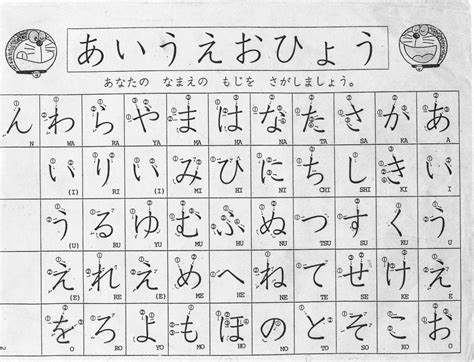 あいうえおひょう
あなたの なまえの もじを さがしましょう。
ん わ ら や ま は な た さ か あ
N WA RA YA MA HA NA TA SA KA A
い り い み ひ に ち し き い
(I) RI (I) MI HI NI CHI SHI KI I
う る ゆ む ふ ぬ つ す く う
(U) RU YU MU HU NU TSU SU KU U
え れ え め へ ね て せ け え
(E) RE (E) ME HE NE TE SE KE E
を ろ よ も ほ の と そ こ お
O RO YO MO HO NO TO SO KO O